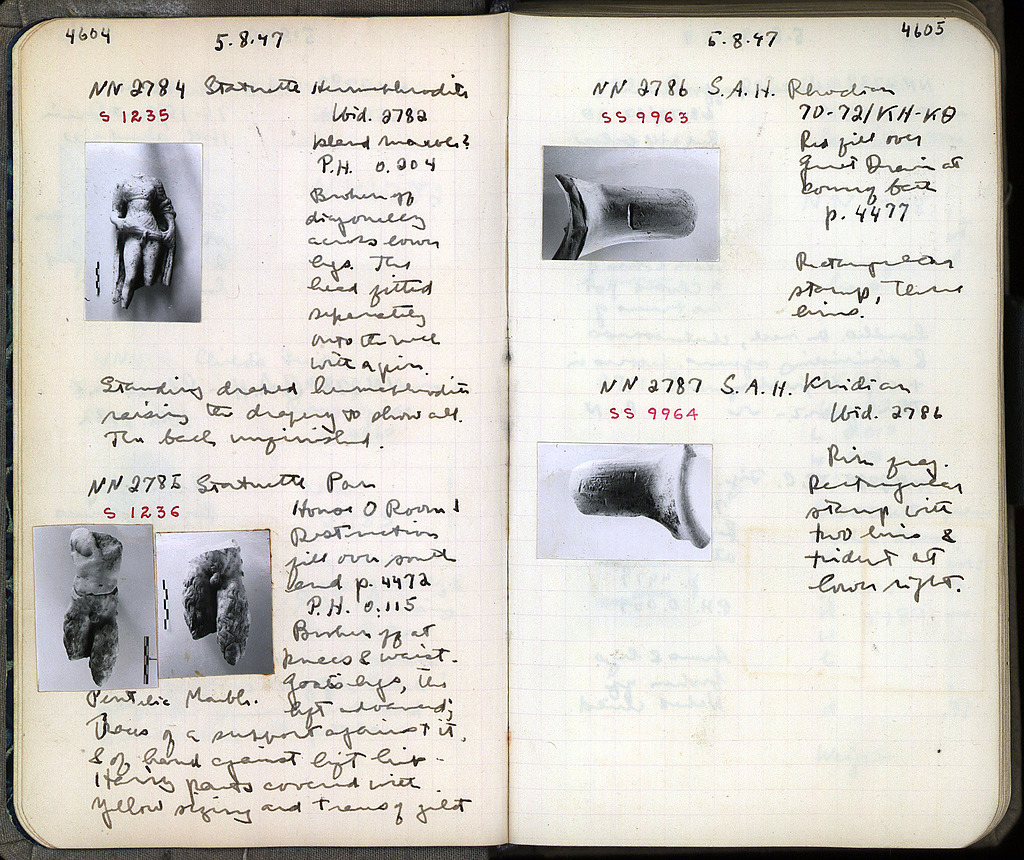 4604
5.8.47
NN 2784 Statuette Hermaphrodite
S 1235
Ibid. 2782
Island marble?
P.H. 0.204
Broken off
diagonally
across lower
legs. The
head fitted
separately
onto the neck
with a pin.
Standing draped hermaphrodite
raising the drapery to show all.
The back unfinished.
NN 2785 Statuette Pan
S 1236
House O Room 1
Destruction
fill over south
end p. 4472
P.H. 0.115
Broken off at
knees & waist.
Pentelic Marble.
Goats legs, the
left advanced;
Traces of a support against it,
& of hand against left hip.
Hairy parts covered with
yellow sizing and traces of gilt
4605
5.8.47
NN 2786 S.A.H. Rhodian
SS 9963
70-72/ΚΗ-ΚΘ
Red fill over
Great Drain at
p. 4477
Rectangular
stamp, three
lines.
NN 2787 S.A.H. Knidian
SS 9964
Ibid. 2786
Rim frag.
Rectangular
stamp with
two lines &
trident at
lower right.